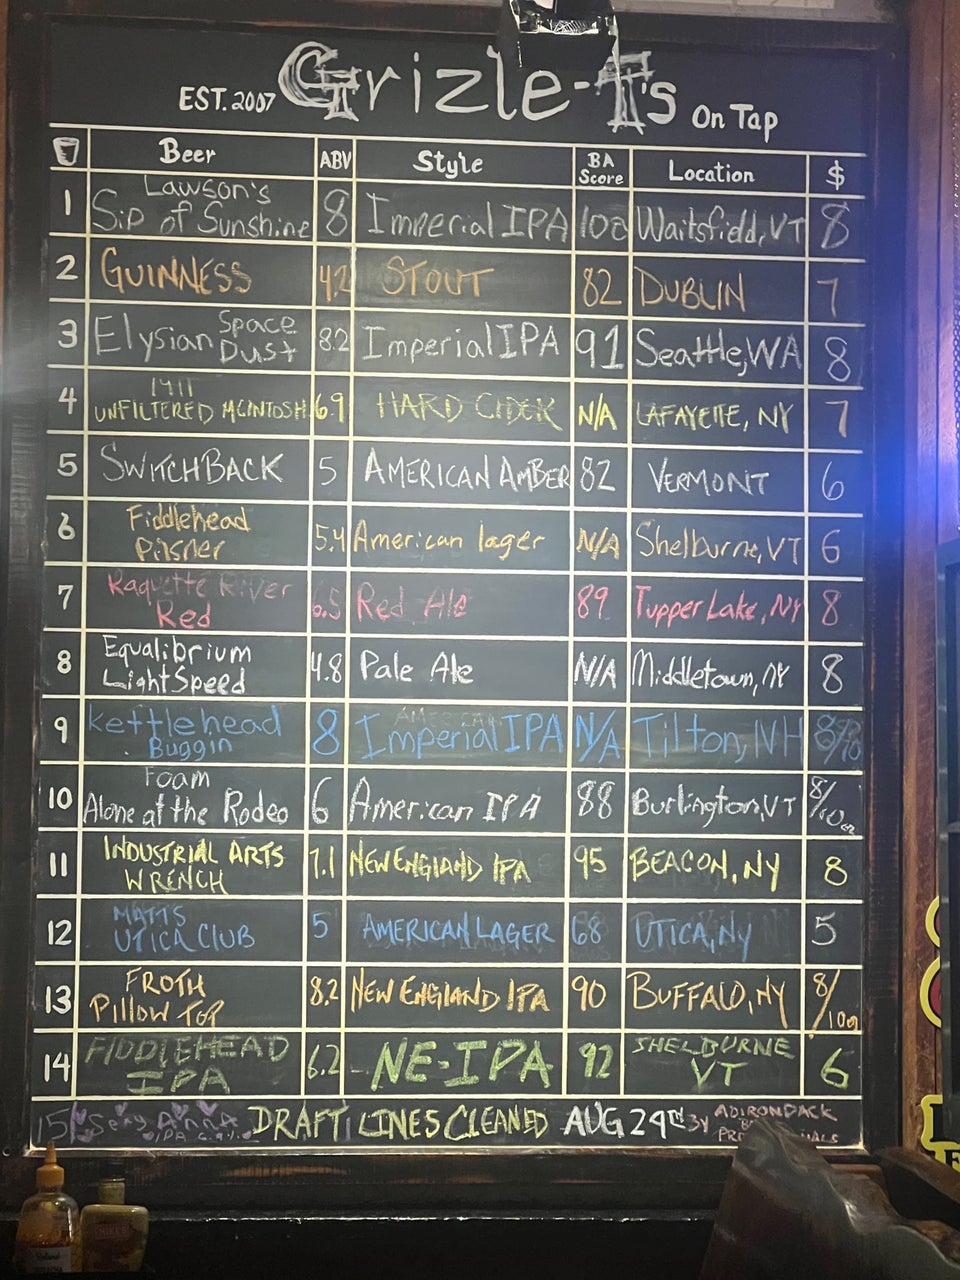 EST. 2007 Grizle-T's On Tap
Beer ABV Style BA Score Location $
1 Lawson's Sip of Sunshine 8 Imperial IPA 100 Waitsfield, VT 8
2 GUINNESS 4.2 STOUT 82 DUBLIN 7
3 Elysian Space Dust 8.2 Imperial IPA 91 Seattle, WA 8
4 1911 UNFILTERED MCINTOSH 6.9 HARD CIDER N/A LAFAYETTE, NY 7
5 SWITCHBACK 5 AMERICAN AMBER 82 VERMONT 6
6 Fiddlehead Pilsner 5.4 American lager N/A Shelburne, VT 6
7 Raquette River Red 6.5 Red Ale 89 Tupper Lake, NY 8
8 Equalibrium LightSpeed 4.8 Pale Ale N/A Middletown, NY 8
9 Kettlehead Buggin 8 Imperial IPA N/A Tilton, NH 8/10
10 Foam Alone at the Rodeo 6 American IPA 88 Burlington, VT 8/10oz
11 INDUSTRIAL ARTS WRENCH 7.1 NEW ENGLAND IPA 95 BEACON, NY 8
12 MATTS UTICA CLUB 5 AMERICAN LAGER 68 UTICA, NY 5
13 FROTH Pillow TOP 8.2 NEW ENGLAND IPA 90 BUFFALO, NY 8/10oz
14 FIDDLEHEAD IPA 6.2 NE-IPA 92 SHELBURNE VT 6
15 Sexy Anna IPA DRAFT LINES CLEANED AUG 24TH By ADIRONDACK